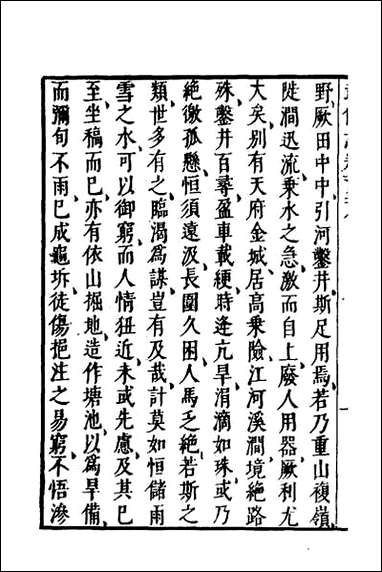 野厥田中中引河鑿井斯足用焉若乃重山複嶺
陡澗迅流乗水之急激而自上廢人用器厥利尤
大矣别有天府金城居高乗險江河溪澗境絶路
殊鑿井百尋盈車載綆時逢亢旱涓滴如珠或乃
絶徼孤懸恒須遠汲長圍久困人馬乏絶若斯之
類世多有之臨渴爲謀豈有及哉計莫如恒儲雨
雪之水可以御窮而人情狃近未或先慮及其已
至坐稿而已亦有依山掘地造作塘池以爲旱備
而彌旬不雨已成龜坼徒傷挹注之易窮不悟滲